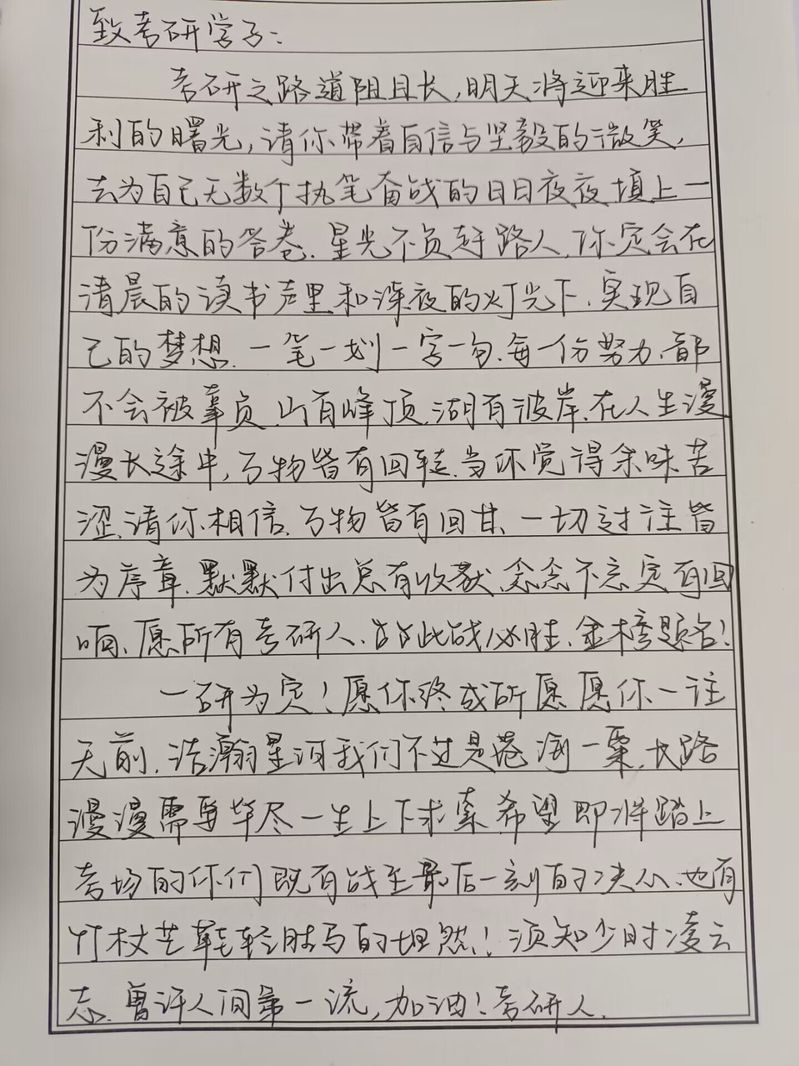 致考研学子:
考研之路道阻且长,明天将迎来胜
利的曙光,请你带着自信与坚毅的微笑,
去为自己无数个执笔奋战的日日夜夜填上一
份满意的答卷.星光不负赶路人,你定会在
清晨的读书声里和深夜的灯光下,实现自
己的梦想.一笔一划一字一句,每一份努力,都
不会被辜负.山有峰顶,湖有彼岸,在人生漫
漫长途中,万物皆有回转,当你觉得余味苦
涩,请你相信,万物皆有回甘,一切过往皆
为序章,默默付出总有收获,念念不忘定有回
响,愿所有考研人,占占此战必胜,金榜题名!
一研为定!愿你终成所愿愿你一往
无前,浩瀚星河我们不过是沧海一粟,长路
漫漫需要毕尽一生上下求索,希望即将踏上
考场的你们既有战至最后一刻的决心,也有
竹杖芒鞋轻胜马的坦然!须知少时凌云
志,曾许人间第一流,加油!考研人.